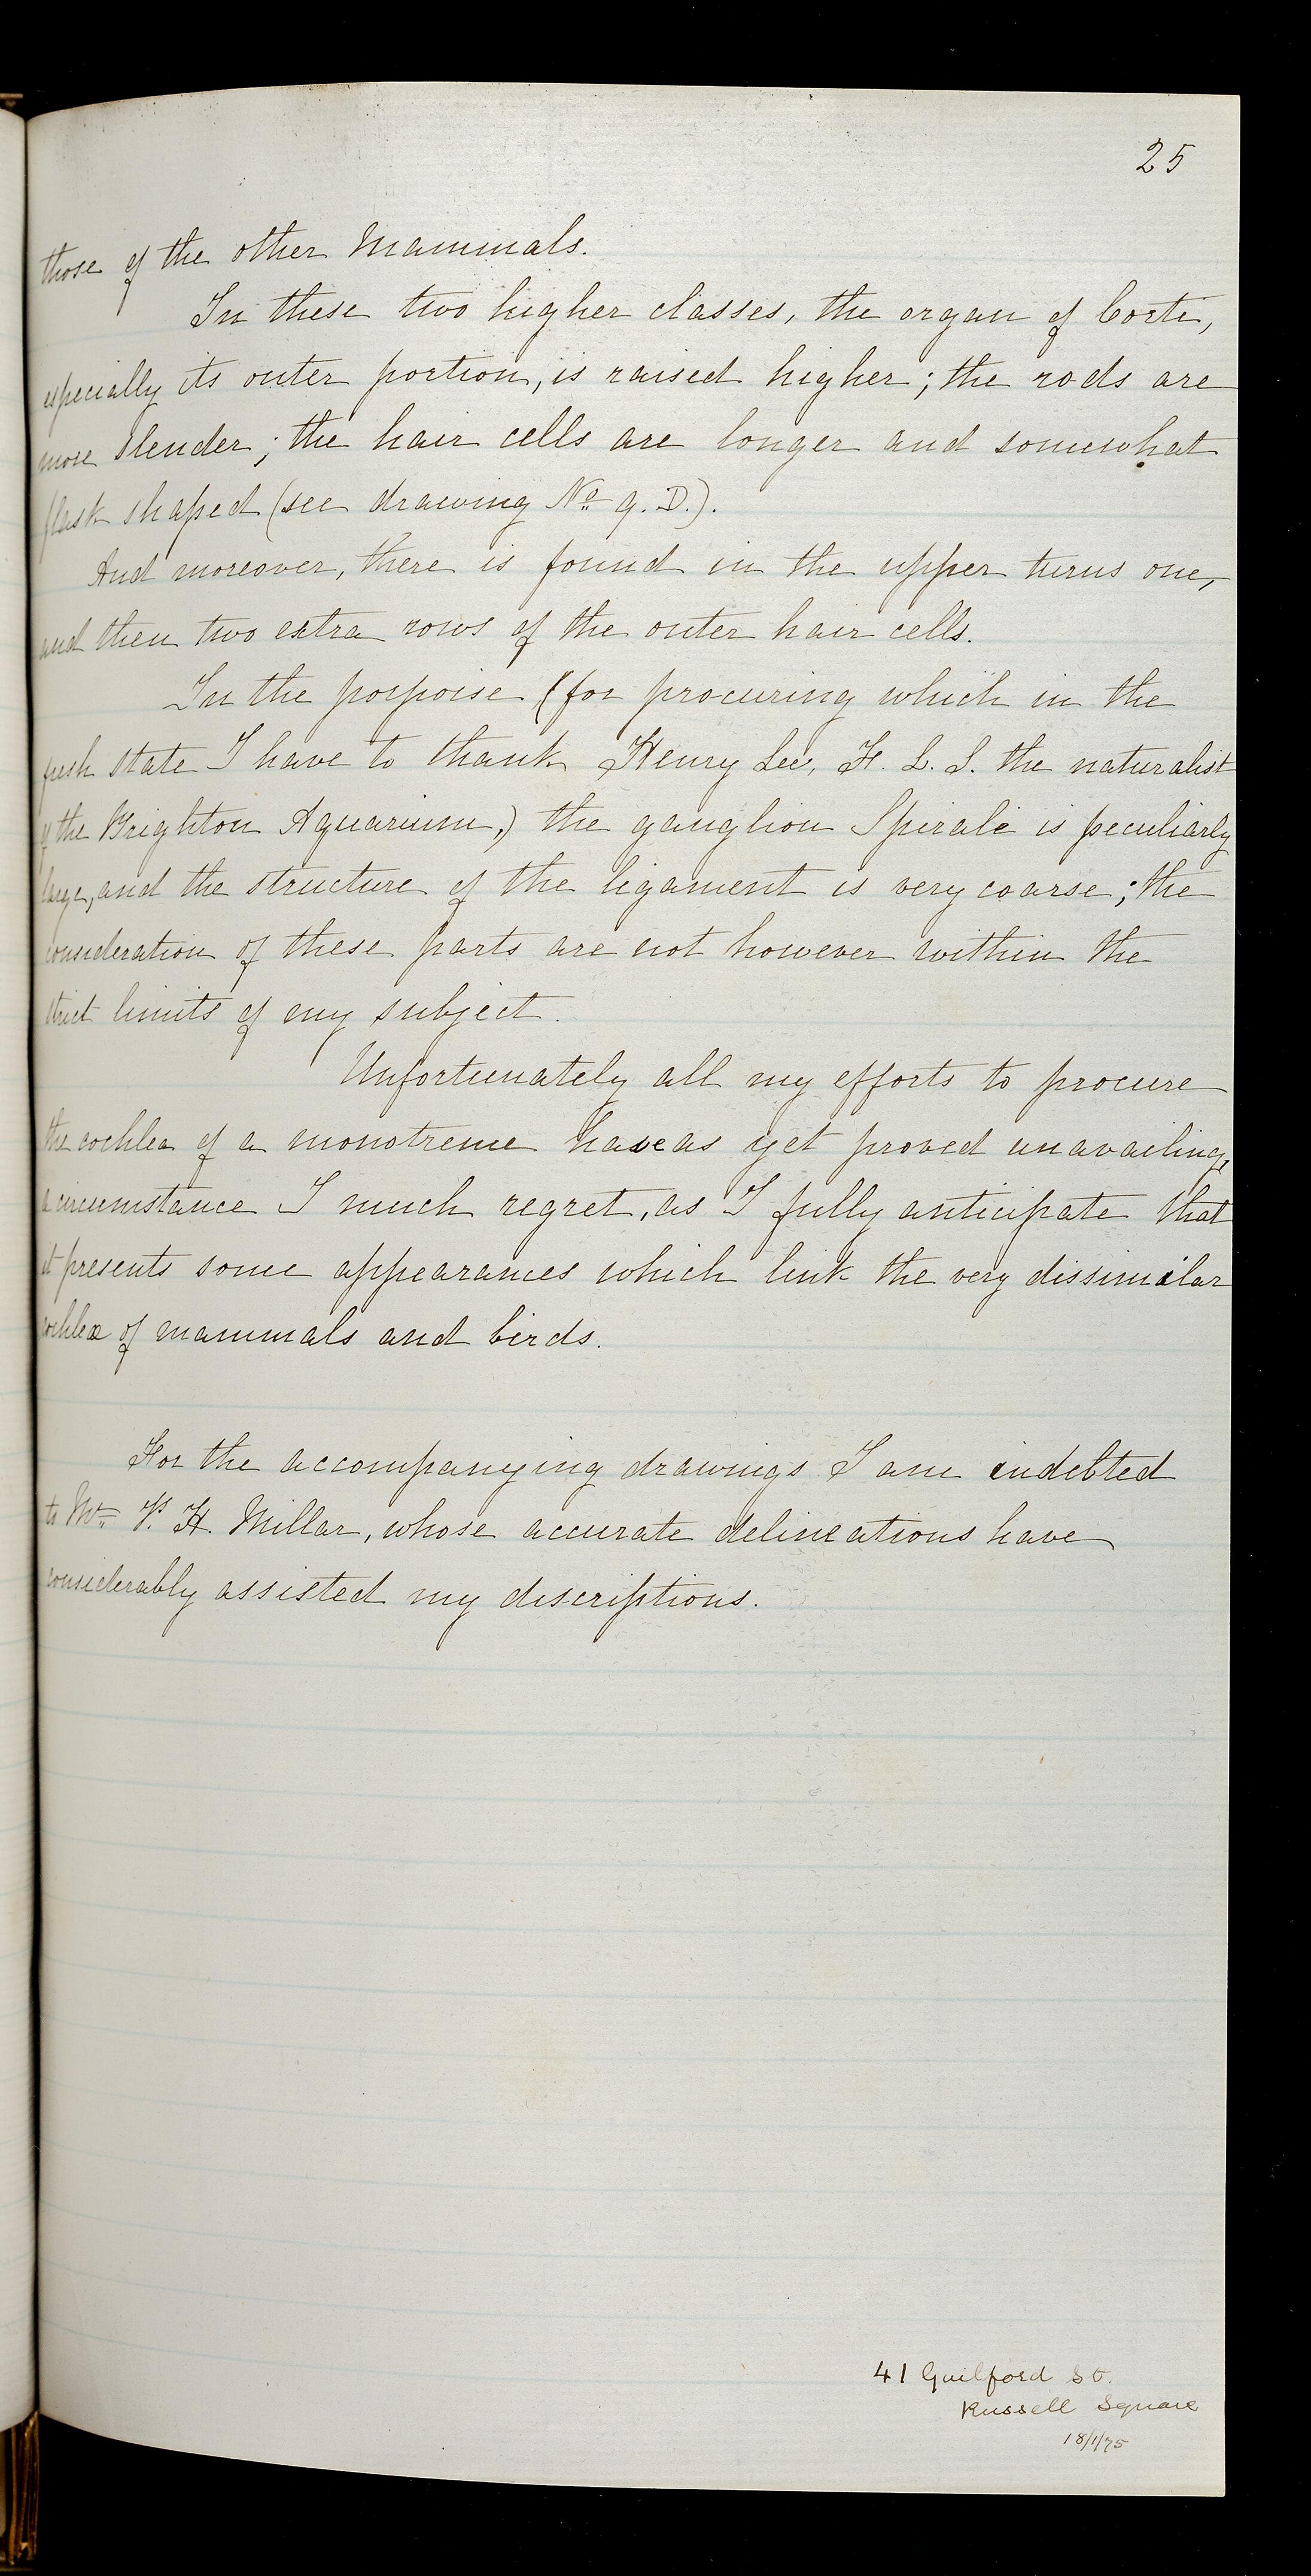 25
those of the other Mammals.
In these two higher classes, the organ of Corti,
especially its outer portion, is raised higher; the rods are
more slender; the hair cells are longer and somewhat
flask shaped (see drawing No 9. D.).
And moreover, there is found in the upper turns one,
and then two extra rows of the outer hair cells.
In the porpoise (for procuring which in the
fresh state I have to thank Henry Lee, F. L. S. the naturalist
of the Brighton Aquarium,) the ganglion Spirale is peculiarly
large, and the structure of the ligament is very coarse; the
consideration of these parts are not however within the
strict limits of my subject.
Unfortunately all my efforts to procure
the cochlea of a monotreme have as yet proved unavailing,
a circumstance I much regret, as I fully anticipate that
it presents some appearances which link the very dissimilar
cochleæ of mammals and birds.
For the accompanying drawings I am indebted
to Mr. H. Millar, whose accurate delineations have
considerably assisted my descriptions.
41 Guilford St.
Russell Square
18/1/75